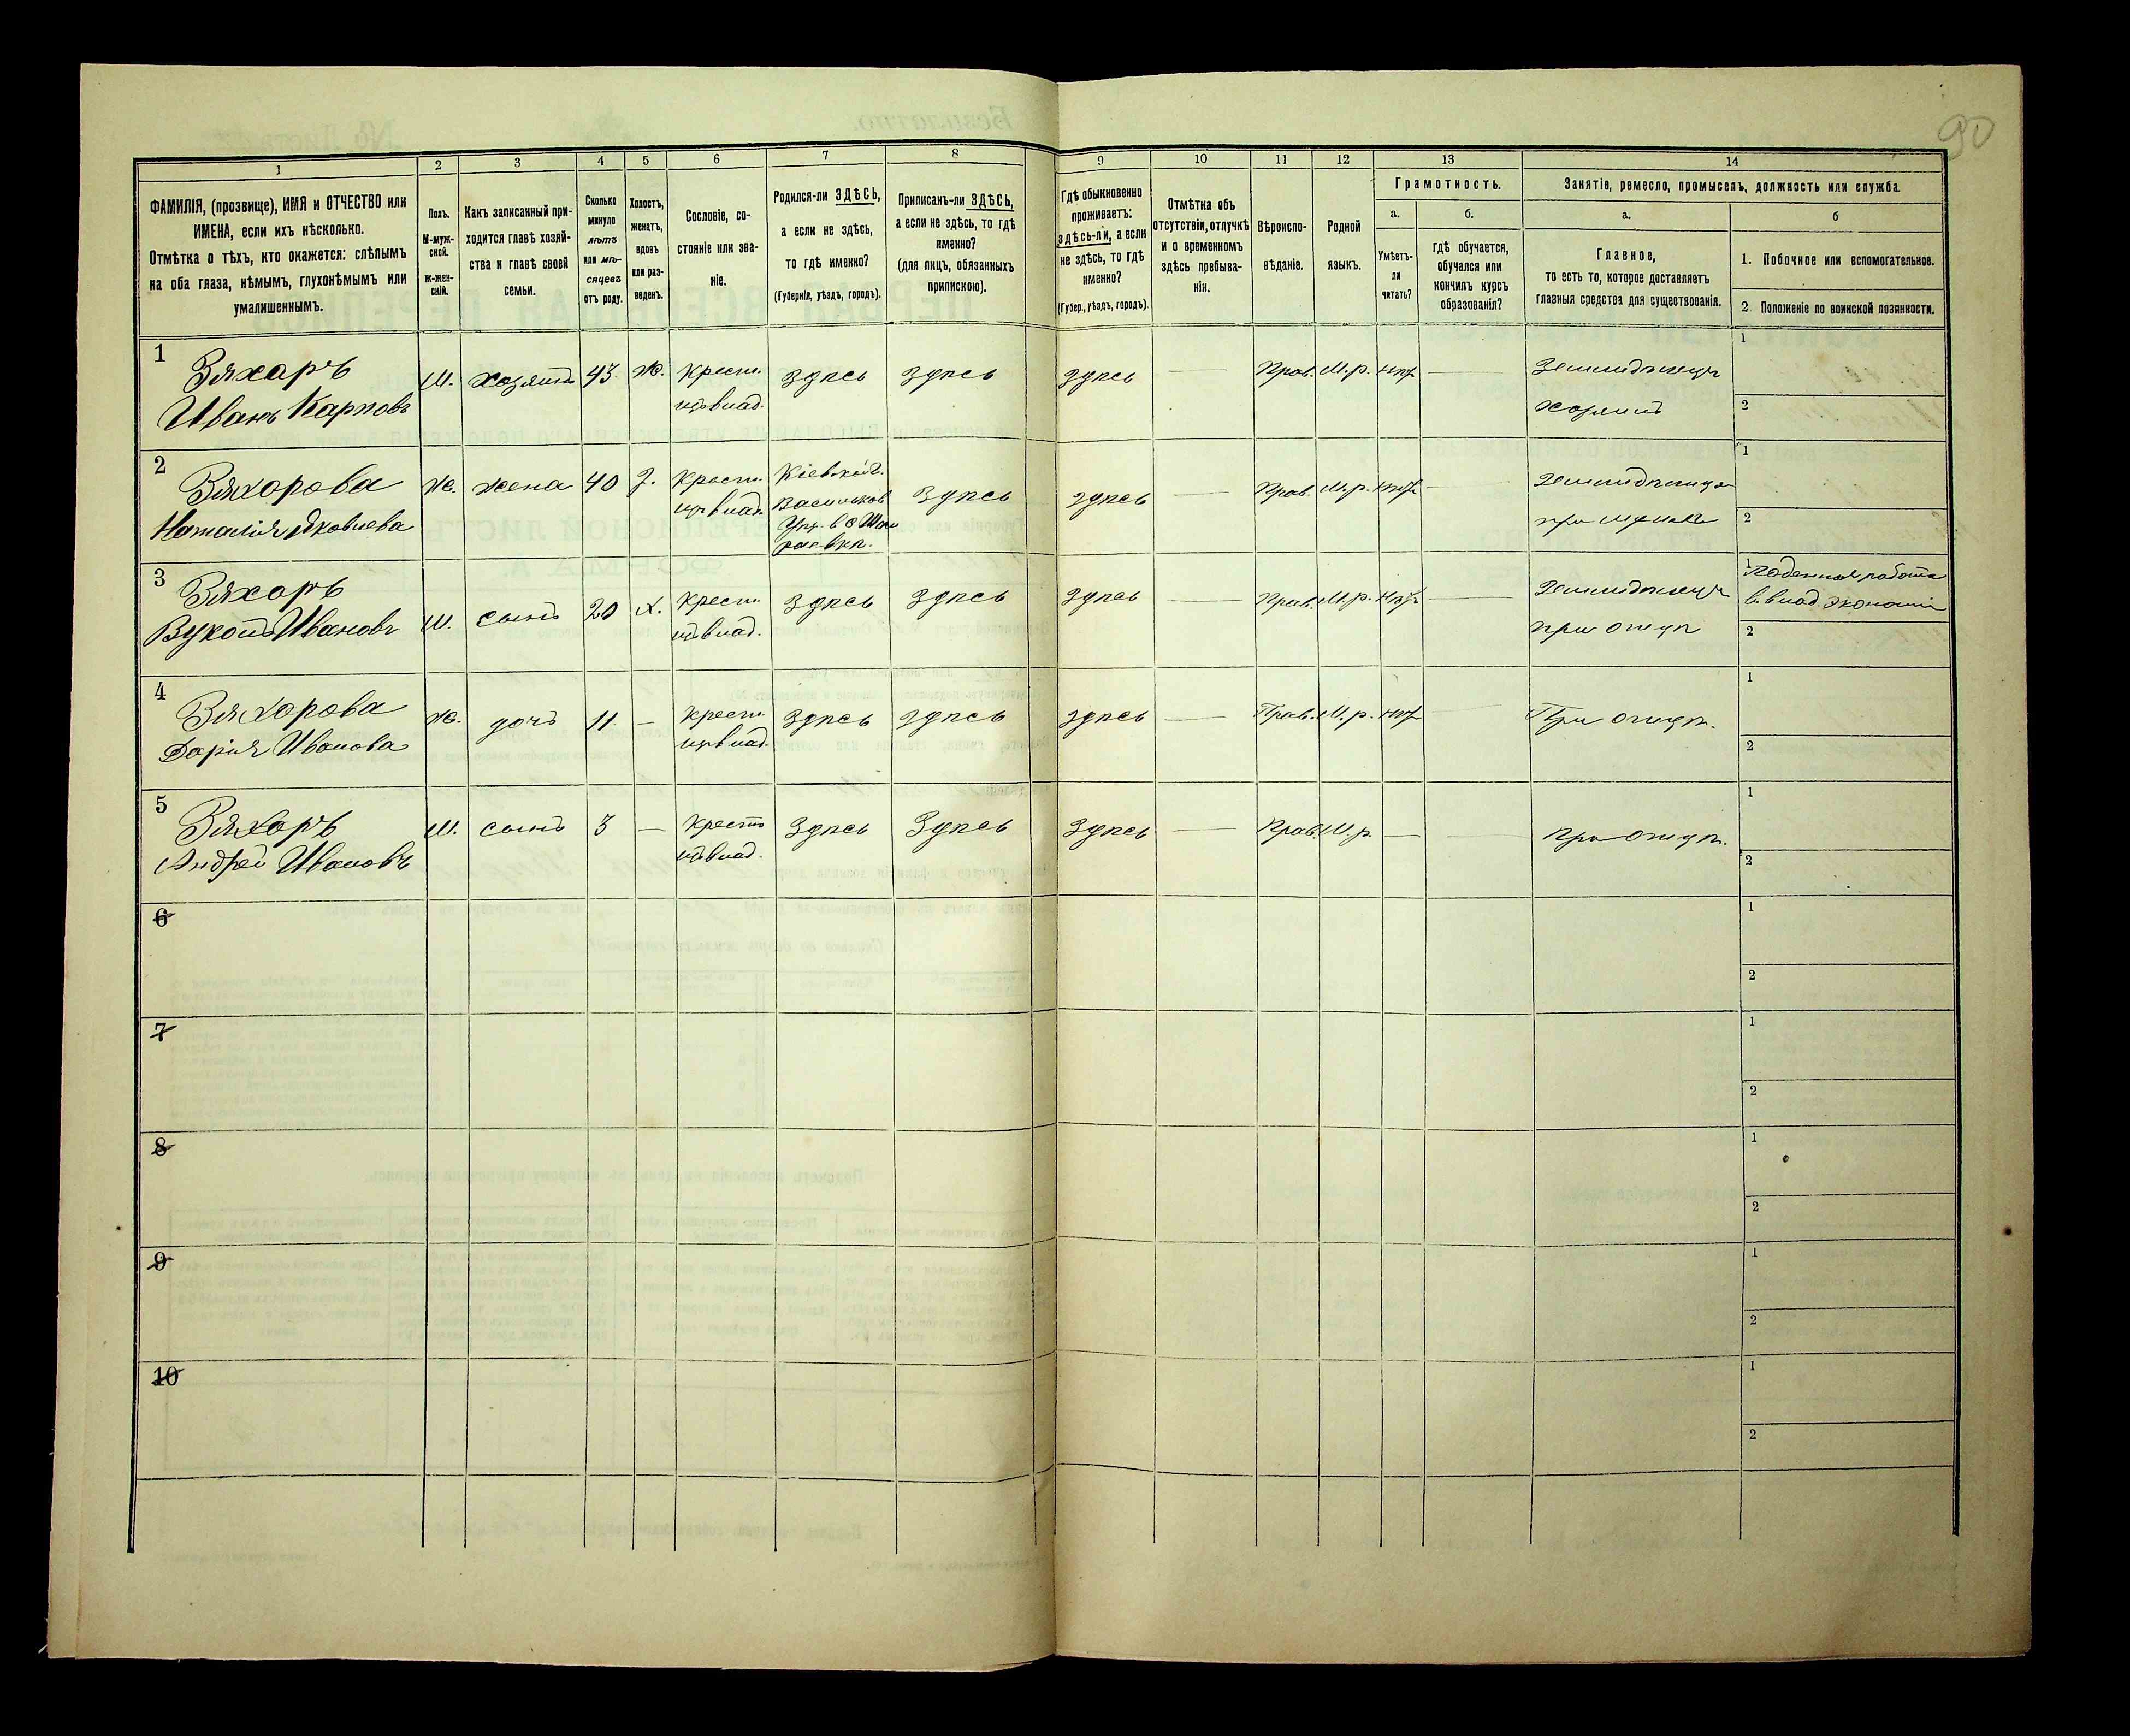 90
1 2 3 4 5 6 7 8 9 10 11 12 13 14
ФАМИЛІЯ, (прозвище), ИМЯ и ОТЧЕСТВО или
ИМЕНА, если ихъ нѣсколько.
Отмѣтка о тѣхъ, кто окажется: слѣпымъ
на оба глаза, нѣмымъ, глухонѣмымъ или
умалишеннымъ.
Полъ.
М-муж-
ской.
Ж-жен-
скій.
Какъ записанный при-
ходится главѣ хозяй-
ства и главѣ своей
семьи.
Сколько
минуло
лѣтъ
или мѣ-
сяцевъ
отъ роду.
Холостъ,
женатъ,
вдовъ
или раз-
веденъ.
Сословіе, со-
стояніе или зва-
ніе.
Родился-ли ЗДѢСЬ,
а если не здѣсь,
то гдѣ именно?
(Губернія, уѣздъ, городъ).
Приписанъ-ли ЗДѢСЬ,
а если не здѣсь, то гдѣ
именно?
(для лицъ, обязанныхъ
припискою).
Гдѣ обыкновенно
проживаетъ:
здѣсь-ли, а если
не здѣсь, то гдѣ
именно?
(Губер., уѣздъ, городъ).
Отмѣтка объ
отсутствіи, отлучкѣ
и о временномъ
здѣсь пребыва-
ніи.
Вѣроиспо-
вѣданіе.
Родной
языкъ.
Грамотность.
а.
Умѣетъ-
ли
читать?
б.
гдѣ обучается,
обучался или
кончилъ курсъ
образованія?
Занятіе, ремесло, промыселъ, должность или служба.
а.
Главное,
то есть то, которое доставляетъ
главныя средства для существованія.
б
1. Побочное или вспомогательное.
2 Положеніе по воинской повинности.
1 Зяхаръ М. хозяинъ 43 Ж. Крест. здѣсь здѣсь здѣсь — Прав. М.р. нѣт — Земледѣлецъ 1
Иванъ Карповъ владѣл. хозяинъ 2
2 Зяхорова Ж. жена 40 З. Крест. Кіевской г. здѣсь здѣсь — Прав. М.р. нѣт — 1
Наталія Яковлева Васильков. при мужѣ 2
3 Зяхоръ М. сынъ 20 Х. Крест. здѣсь здѣсь здѣсь — Прав. М.р. нѣт — Земледѣлецъ 1 Поденная работа
Ивановъ при отцѣ в влад. экономіи
2
4 Зяхорова Ж. дочь 11 — Крест. здѣсь здѣсь здѣсь — Прав. М.р. нѣт — При отцѣ. 1
Дарія Иванова 2
5 Зяхоръ М. сынъ 3 — Крест. здѣсь здѣсь здѣсь — Прав. М.р. — — При отцѣ. 1
Андрей Ивановъ 2
6 1
2
7 1
2
8 1
2
9 1
2
10 1
2